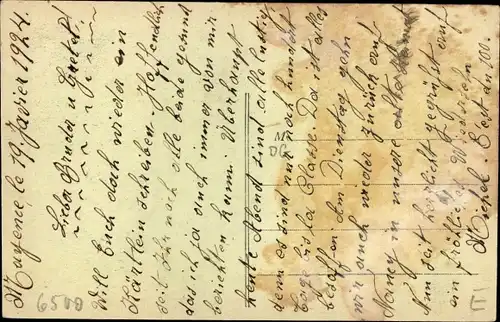 Mayence le 19. Javier 1924.
Lieber Bruder u Gretel!
Will Euch doch wieder ein
Kärtlein schreiben. Hoffendlich
seit Ihr noch alle beide gesund
das ich ja auch immer von mir
berichten kann. Überhaupt
heute Abend sind alle lustig
denn es sind nur noch hundert
Tage bis la Classe. Da ist alles
besoffen. Am Dienstag gehn
wir auch wieder zurück auf
Nancy in unsre alte
Nun seit herzlich gegrüst auf
ein fröhliches Wiedersehn
Michel. C'est du 100.
6500